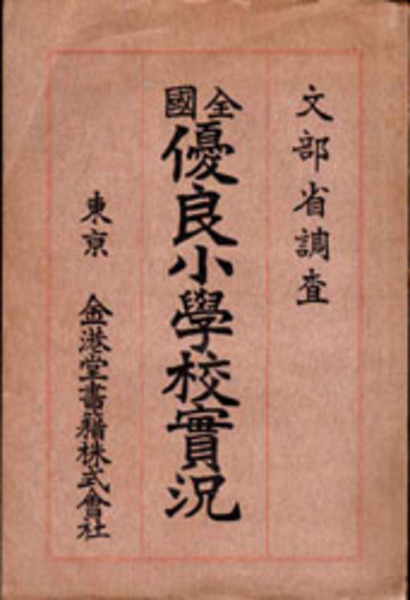 文部省調査
全國
優良小學校實況
東京 金港堂書籍株式會社